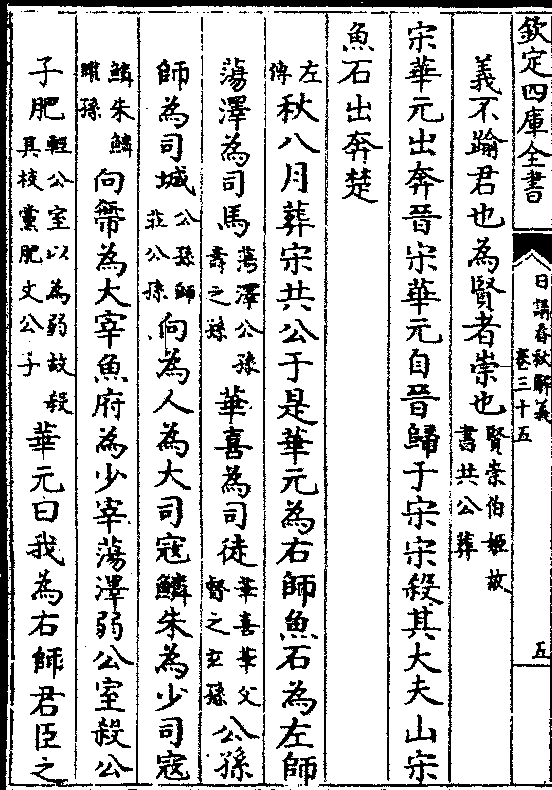 欽定四庫全書
日講春秋解義
卷三十五
五
義不踰君也為賢者崇也賢崇伯姬故書共公葬
宋華元出奔晉宋華元自晉歸于宋宋殺其大夫山宋
魚石出奔楚
左傳秋八月葬宋共公于是華元為右師魚石為左師
蕩澤為司馬蕩澤公孫壽之孫華喜為司徒華喜華父督之玄孫公孫
師為司城公孫師莊公孫向為人為大司寇鱗朱為少司寇
鱗朱鱗矔孫向帶為大宰魚府為少宰蕩澤弱公室殺公
子肥輕公室以為弱故殺其枝黨肥文公子華元曰我為右師君臣之